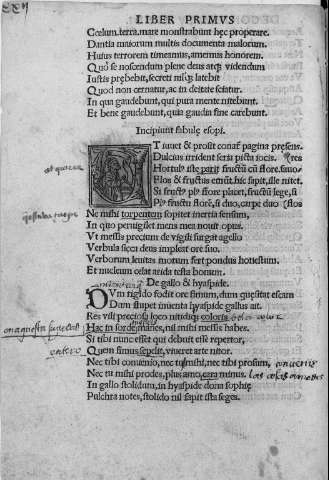 LIBER PRIMVS
Cœlum. terra. mare monstrabunt hęc properare.
Dantia maiorum multis documenta malorum.
Huius terrorem timeamus, amemus honorem.
Quô se noscendum plene deus atqꝫ videndum
Iustis prębebit, secreti nilqꝫ latebit
Quod non cernatur, ac in deitate sciatur.
In qua gaudebunt, qui pura mente nitebunt.
Et bene gaudebunt, quia gaudia sine carebunt.
Incipiunt fabulę esopi.
VT iuuet & prosit conaf pagina pręsens.
Dulcius arrident seria picta iocis.
Hortulꝰ iste parit fructũ cũ flore.
Flos & fructus hic sapit, ille nitet.
Si fructꝰ plꝰ flore placet, fructũ lege, si
Plꝰ fructu flore, si duo, carpe duo
Ne mihi torpentem sopitet inertia sensum,
In quo peruigilet mens mea nouit opus.
Vt messis precium de vili surgat agello
Verbula sicca deus impleat ore suo.
Verborum leuitas morum fert pondus honestum.
Et nucleum celat arida testa bonum.
De gallo & hyaspide.
DVm rigido fodit ore fimum, dum quęritat escam
Dum stupet inuenta hyaspide gallus ait.
Res vili preciosa loco nitidiqꝫ coloris
Hac in sorde manes, nil mihi messis habes.
Si tibi nunc esset qui debuit esse repertor,
Quem fimus sepelit, viueret arte nitor.
Nec tibi conuenio, nec tu mihi, nec tibi prosum,
Nec tu mihi prodes, plus amo, cara minus.
In gallo stolidum, in hyaspide dona sophię
Pulchra notes, stolido nil sapit ista seges.